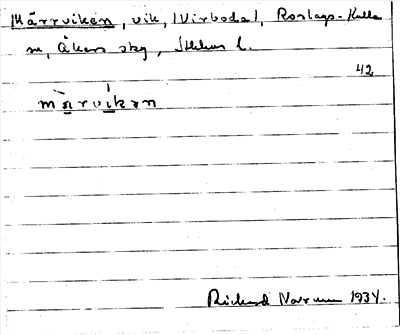 Märrviken, vik, (Virboda), Roslags-Kulla
sn, Åkers skg, Sthlms l.
42
märvikən
Rickard Norrman 1934.